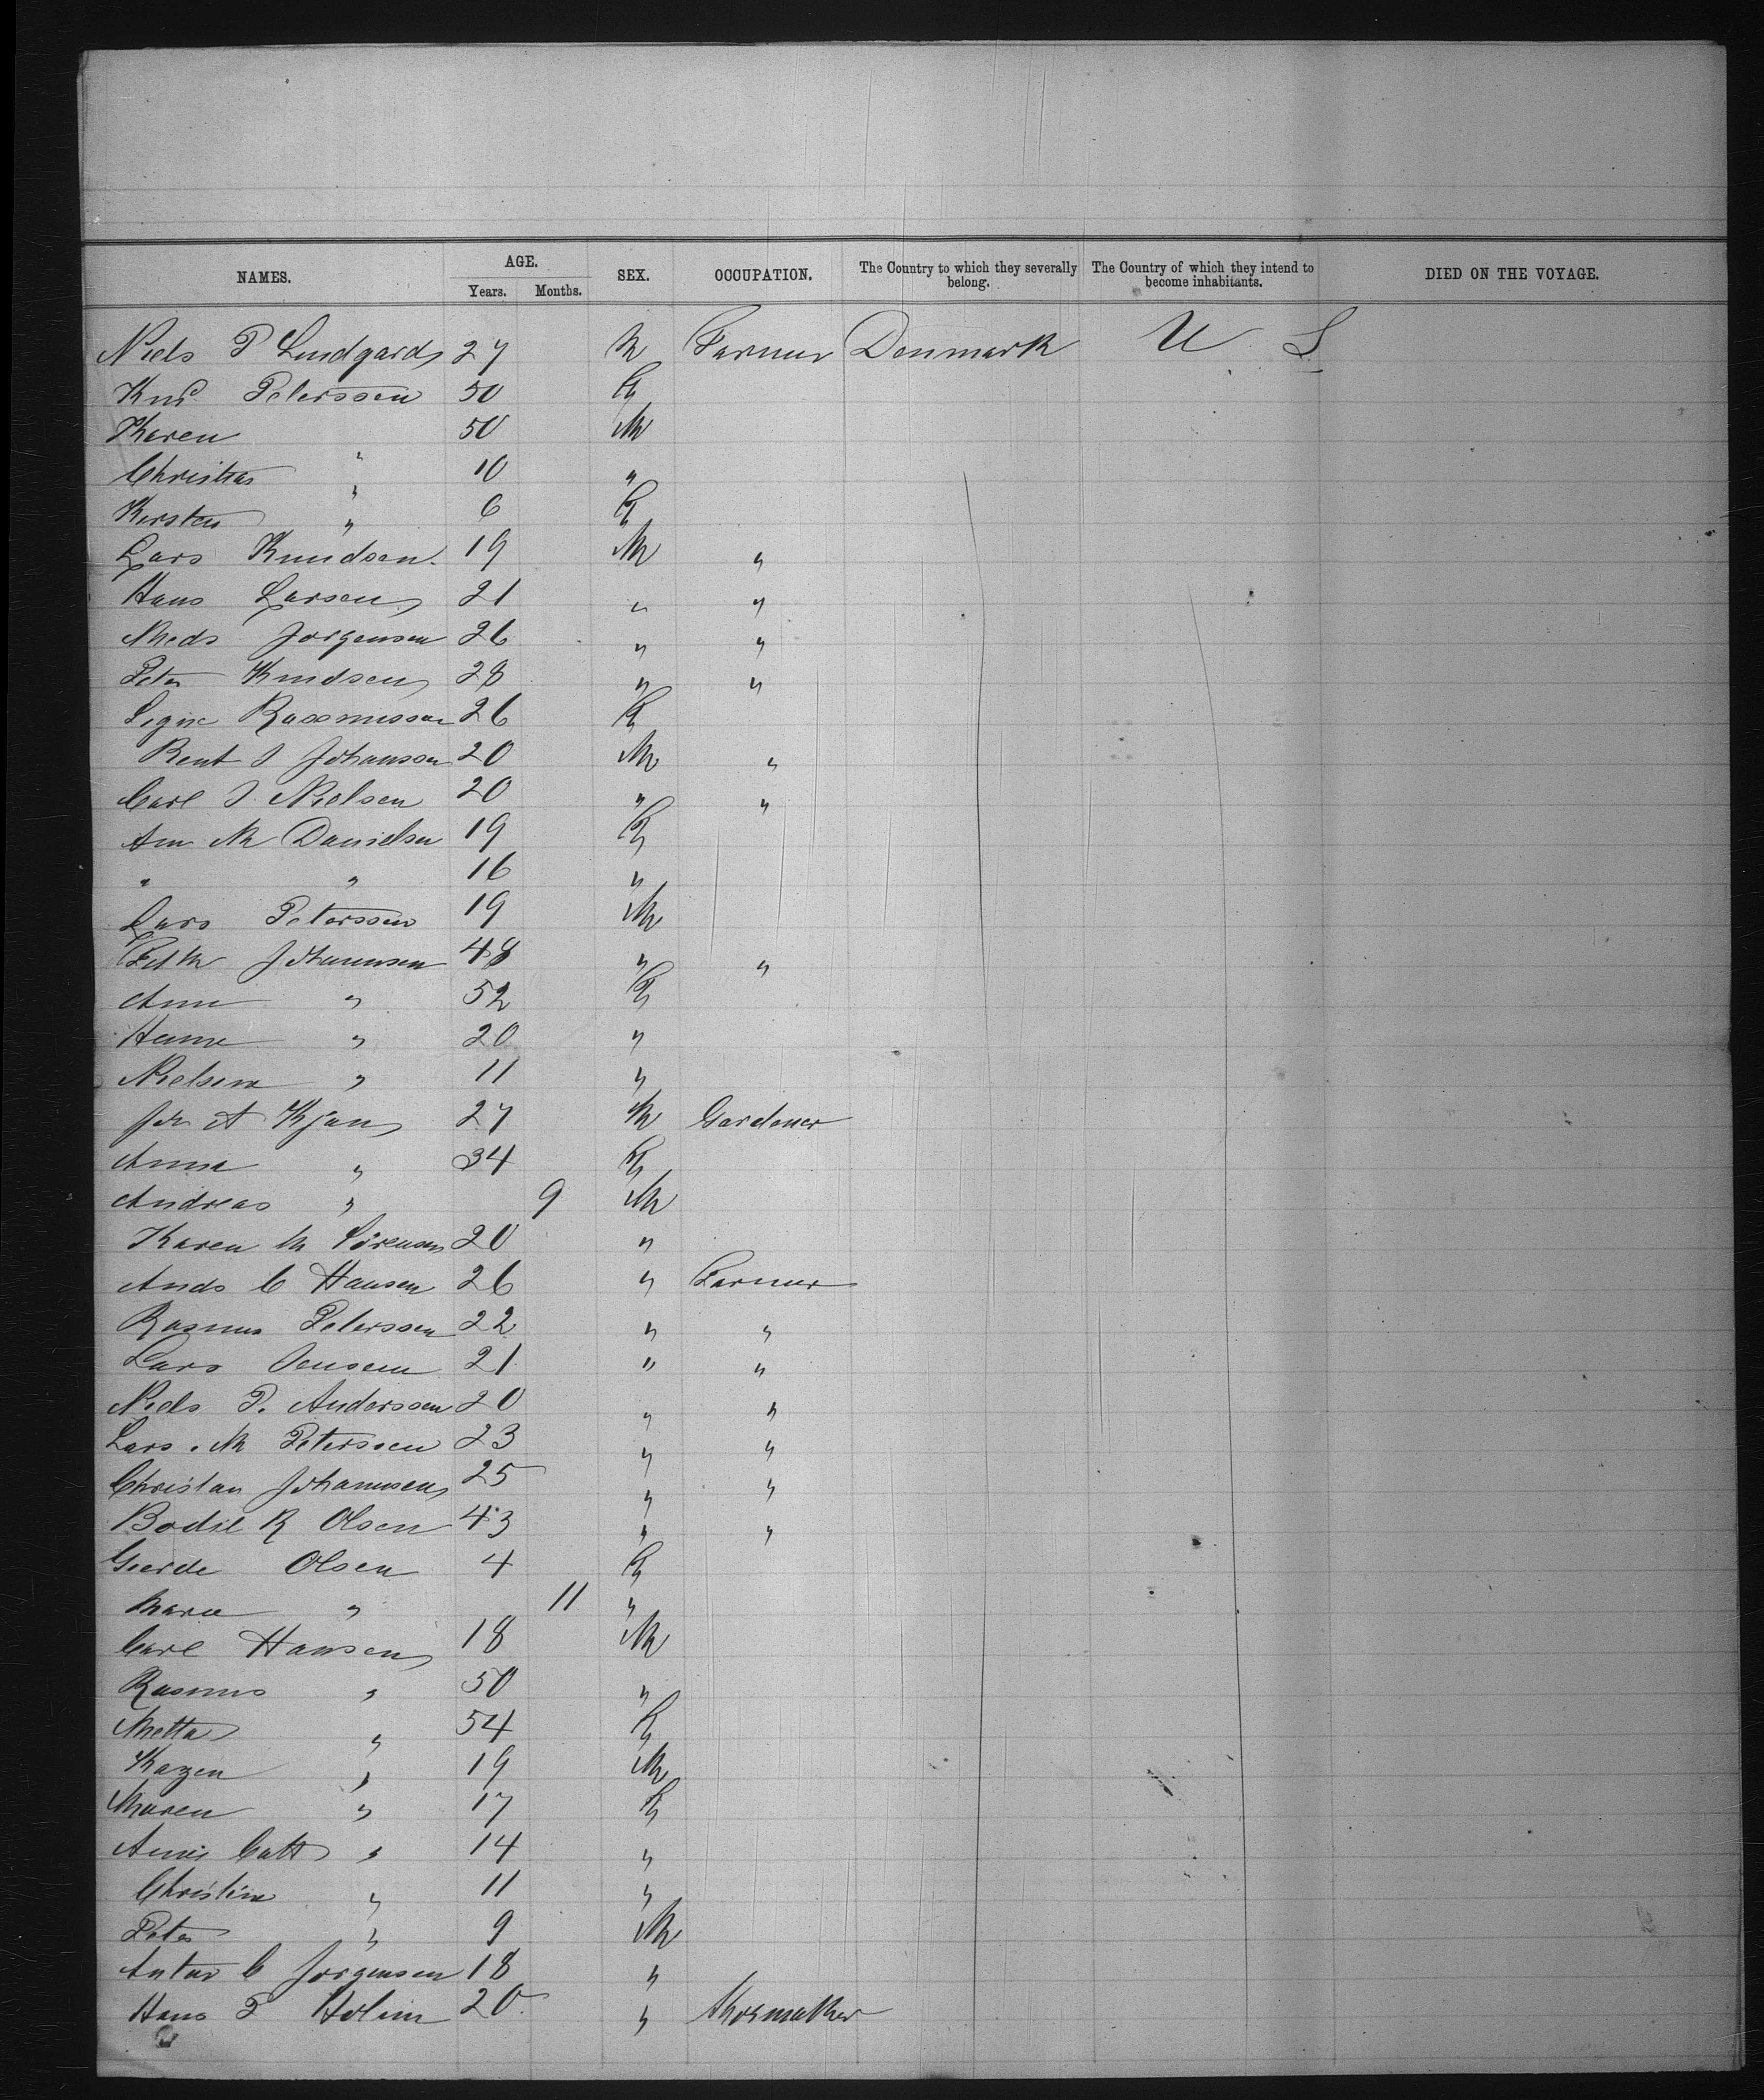 NAMES. AGE. SEX. OCCUPATION. The Country to which they severally belong. The Country of which they intend to become inhabitants. DIED ON THE VOYAGE.
Years. Months.
Niels P Lindgard 27 M Farmer Denmark U S
Knd Peterssen 50
Karen 50 M
Christian " 10 "
Kersten " 6
Lars Knudsen 19 M "
Hans Larsen 21 " "
Meds Jorgensen 26 " "
Peter Knudsen 28 " "
Signe Rassmussen 26
Bent J Johanson 20 M "
Carl J. Nielsen 20 " "
Ann M Danielsen 19
" " 16 "
Lars Peterssen 19 M
Johannsen 48 " "
Ann " 52
Hanne " 20 "
Nielsine " 11 "
A Kjan 27 M Gardener
Anna " 34
Andreas " 9 M
Karen M Sörensen 20 "
Ands C Hansen 26 " Farmer
Rasmus Peterssen 22 " "
Lars Jensen 21 " "
Niels P. Anderssen 20 " "
Lars M Peterssen 23 " "
Christian Johannsen 25 " "
Bodil R Olsen 43 " "
Gerde Olsen 4
Marie " 11 "
Carl Hansen 18 M
Rasmus " 50 "
Metta " 54
" 19 M
Maren " 17
Cath " 14 "
Christine " 11 "
Peter " 9 M
C Jorgensen 18 "
Hans P Holm 20 " Shoemaker